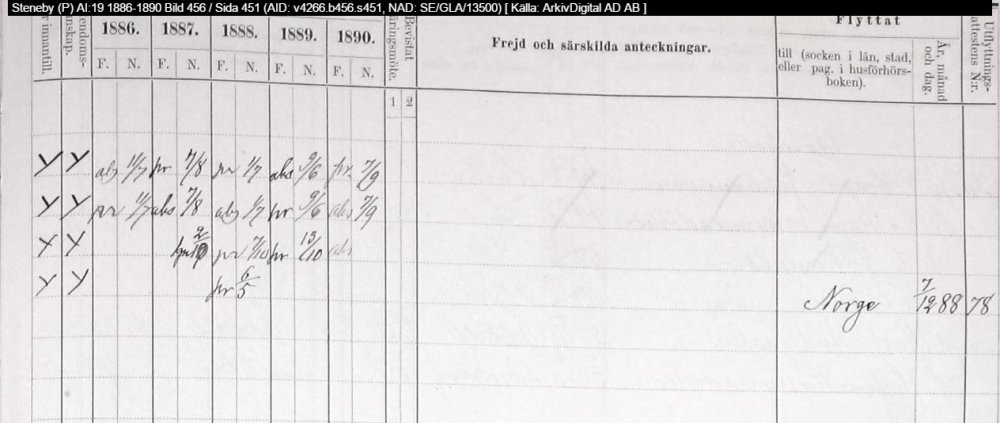 Steneby (P) AI:19 1886-1890 Bild 456 / Sida 451 (AID: v4266.b456.s451, NAD: SE/GLA/13500) [ Källa: ArkivDigital AD AB ]
innantill.
endoms-
nskap.
1886. 1887. 1888. 1889. 1890.
F. N. F. N. F. N. F. N. F. N.
Bevistat
äringsmöte.
1 2
Frejd och särskilda anteckningar.
Flyttat
till (socken i län, stad,
eller pag. i husförhörs-
boken).
År, månad
och dag.
Utflyttnings-
attestens N:r.
y y abs 11/7 pr 7/8 pr 1/7 abs 9/6 pr 7/9
y y pr 11/7 abs 7/8 abs 1/7 pr 9/6 abs 7/9
y y 2/10 pr 7/10 pr 13/10 abs
y y pr 6/5 Norge 7/12 88 78